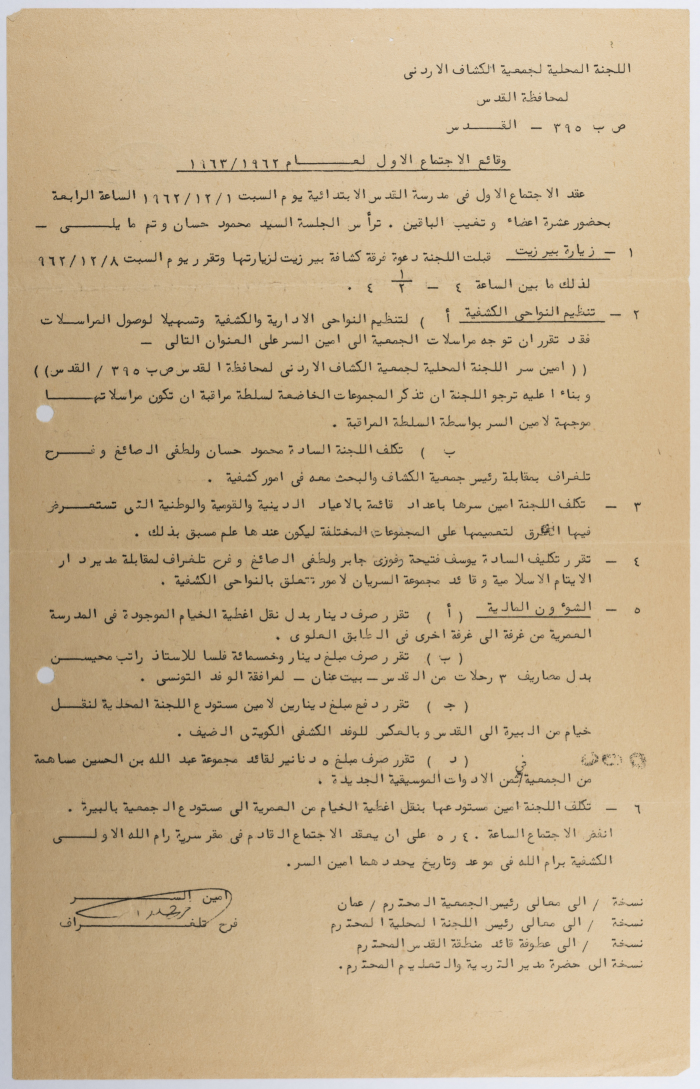 اللجنة المحلية لجمعية الكشاف الاردنى
لمحافظة القدس
ص ب ٣٩٥ – القـــدس
وقائع الاجتماع الاول لعـــــام ١٩٦٣/١٩٦٢
عقد الاجتماع الاول فى مدرسة القدس الابتدائية يوم السبت ١٩٦٢/١٢/١ الساعة الرابعة
بحضور عشرة اعضاء وتغيب الباقين . ترأس الجلسة السيد محمود حسان وتم ما يلـــــى –
١ – زيارة بير زيت قبلت اللجنة دعوة فرقة كشافة بير زيت لزيارتها وتقرر يوم السبت ٩٦٢/١٢/٨
لذلك ما بين الساعة ٤ – ١/٢ ٤ .
٢ – تنظيم النواحى الكشفية أ ) لتنظيم النواحى الادارية والكشفية وتسهيلا لوصول المراسلات
فقد تقرر ان توجه مراسلات الجمعية الى امين السر على العنوان التالى –
( ( امين سر اللجنة المحلية لجمعية الكشاف الاردنى لمحافظة القدس ص ب ٣٩٥ / القدس ) )
وبناءا عليه ترجو اللجنة ان تذكر المجموعات الخاضعة لسلطة مراقبة ان تكون مراسلاتهـــا
موجهة لامين السر بواسطة السلطة المراقبة .
ب ) تكلف اللجنة السادة محمود حسان ولطفى الصائغ وفـــرح
تلغراف بمقابلة رئيس جمعية الكشاف والبحث معه فى امور كشفية .
٣ – تكلف اللجنة امين سرها باعداد قائمة بالاعياد الدينية والقومية والوطنية التى تستعـرض
فيها الفرق لتعميمها على المجموعات المختلفة ليكون عندها علم مسبق بذلك .
٤ – تقرر تكليف السادة يوسف فتيحة وفوزى جابر ولطفى الصائغ وفرح تلغراف لمقابلة مدير دار
الايتام الاسلامية وقائد مجموعة السريان لامور تتعلق بالنواحى الكشفية .
٥ – الشوءون المالية ( أ ) تقرر صرف دينار بدل نقل اغطية الخيام الموجودة فى المدرسة
العمرية من غرفة الى غرفة اخرى فى الطابق العلوى .
( ب ) تقرر صرف مبلغ دينار وخمسمائة فلسا للاستاذ راتب محيســن
بدل مصاريف ٣ رحلات من القدس – بيت عنان – لمرافقة الوفد التونسى .
( جـ ) تقرر دفع مبلغ دينارين لامين مستودع اللجنة المحلية لنقـــل
خيام من البيرة الى القدس وبالعكس للوفد الكشفى الكويتى الضيف .
( د ) تقرر صرف مبلغ ٥ دنانير لقائد مجموعة عبد الله بن الحسين مساهمة
من الجمعية في ثمن الادوات الموسيقية الجديدة .
٦ – تكلف اللجنة امين مستودعها بنقل اغطية الخيام من العمرية الى مستودع الجمعية بالبيرة .
انفض الاجتماع الساعة ٤٠ر٥ على ان يعقد الاجتماع القادم فى مقر سرية رام الله الاولـــى
الكشفية برام الله فى موعد وتاريخ يحددهما امين السر .
امين الســــر
فرح تلغـــــراف
نسخة / الى معالى رئيس الجمعية المحترم / عمان
نسخة / الى معالى رئيس اللجنة المحلية المحترم
نسخة / الى عطوفة قائد منطقة القدس المحترم
نسخة الى حضرة مدير التربية والتعليم المحترم .